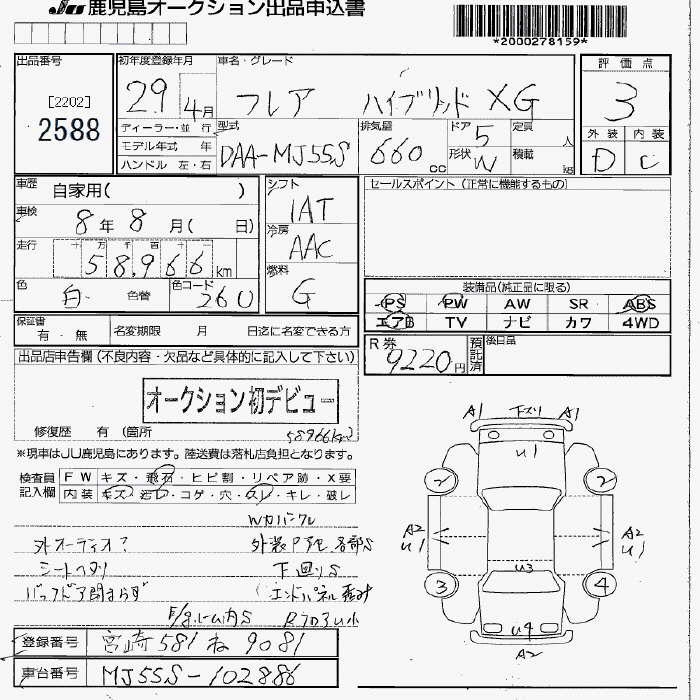 JU 鹿児島オークション出品申込書
*2000278159*
出品番号
[2202]
2588
初年度登録年月
29 4月
車名・グレード
フレア ハイブリッド XG
評価点
3
外装 内装
D C
ディーラー・並行
モデル年式 年
ハンドル 左・右
型式
DAA-MJ55S
排気量
660 cc
ドア 5
形状 W
定員 人
積載 kg
車歴 自家用( )
車検 8年 8月( 日)
走行 十 万 千 百 十
58,966 km
色 白 色替
色コード 26U
シフト
IAT
冷房
AAC
燃料
G
セールスポイント (正常に機能するもの)
装備品(純正品に限る)
PS PW AW SR ABS
エアB TV ナビ カワ 4WD
保証書 有・無
名変期限 月 日迄に名変できる方
R券 9220円
預託済
後日品
出品店申告欄 (不良内容・欠品など具体的に記入して下さい)
オークション初デビュー
修復歴 有 (箇所
58966km
※現車はJU鹿児島にあります。陸送費は落札店負担となります。
検査員記入欄
FW キズ・飛石・ヒビ割・リペア跡・X要
内装 キズ・汚レ・コゲ・穴・スレ・キレ・破レ
Wカバークル
外オーディオ?
外装P予モ、各部S
シートヘタリ
下回りS
バックドア閉まらず
エンドパネル
内S
登録番号 宮崎 581 ね 9081
車台番号 MJ55S-102886
A1 下スリ A1
U1
2 2
A2 U1
A2 U1
U3
3 4
U4
A2